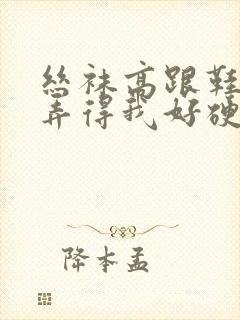 丝袜高跟鞋
弄得我好硬
降本孟